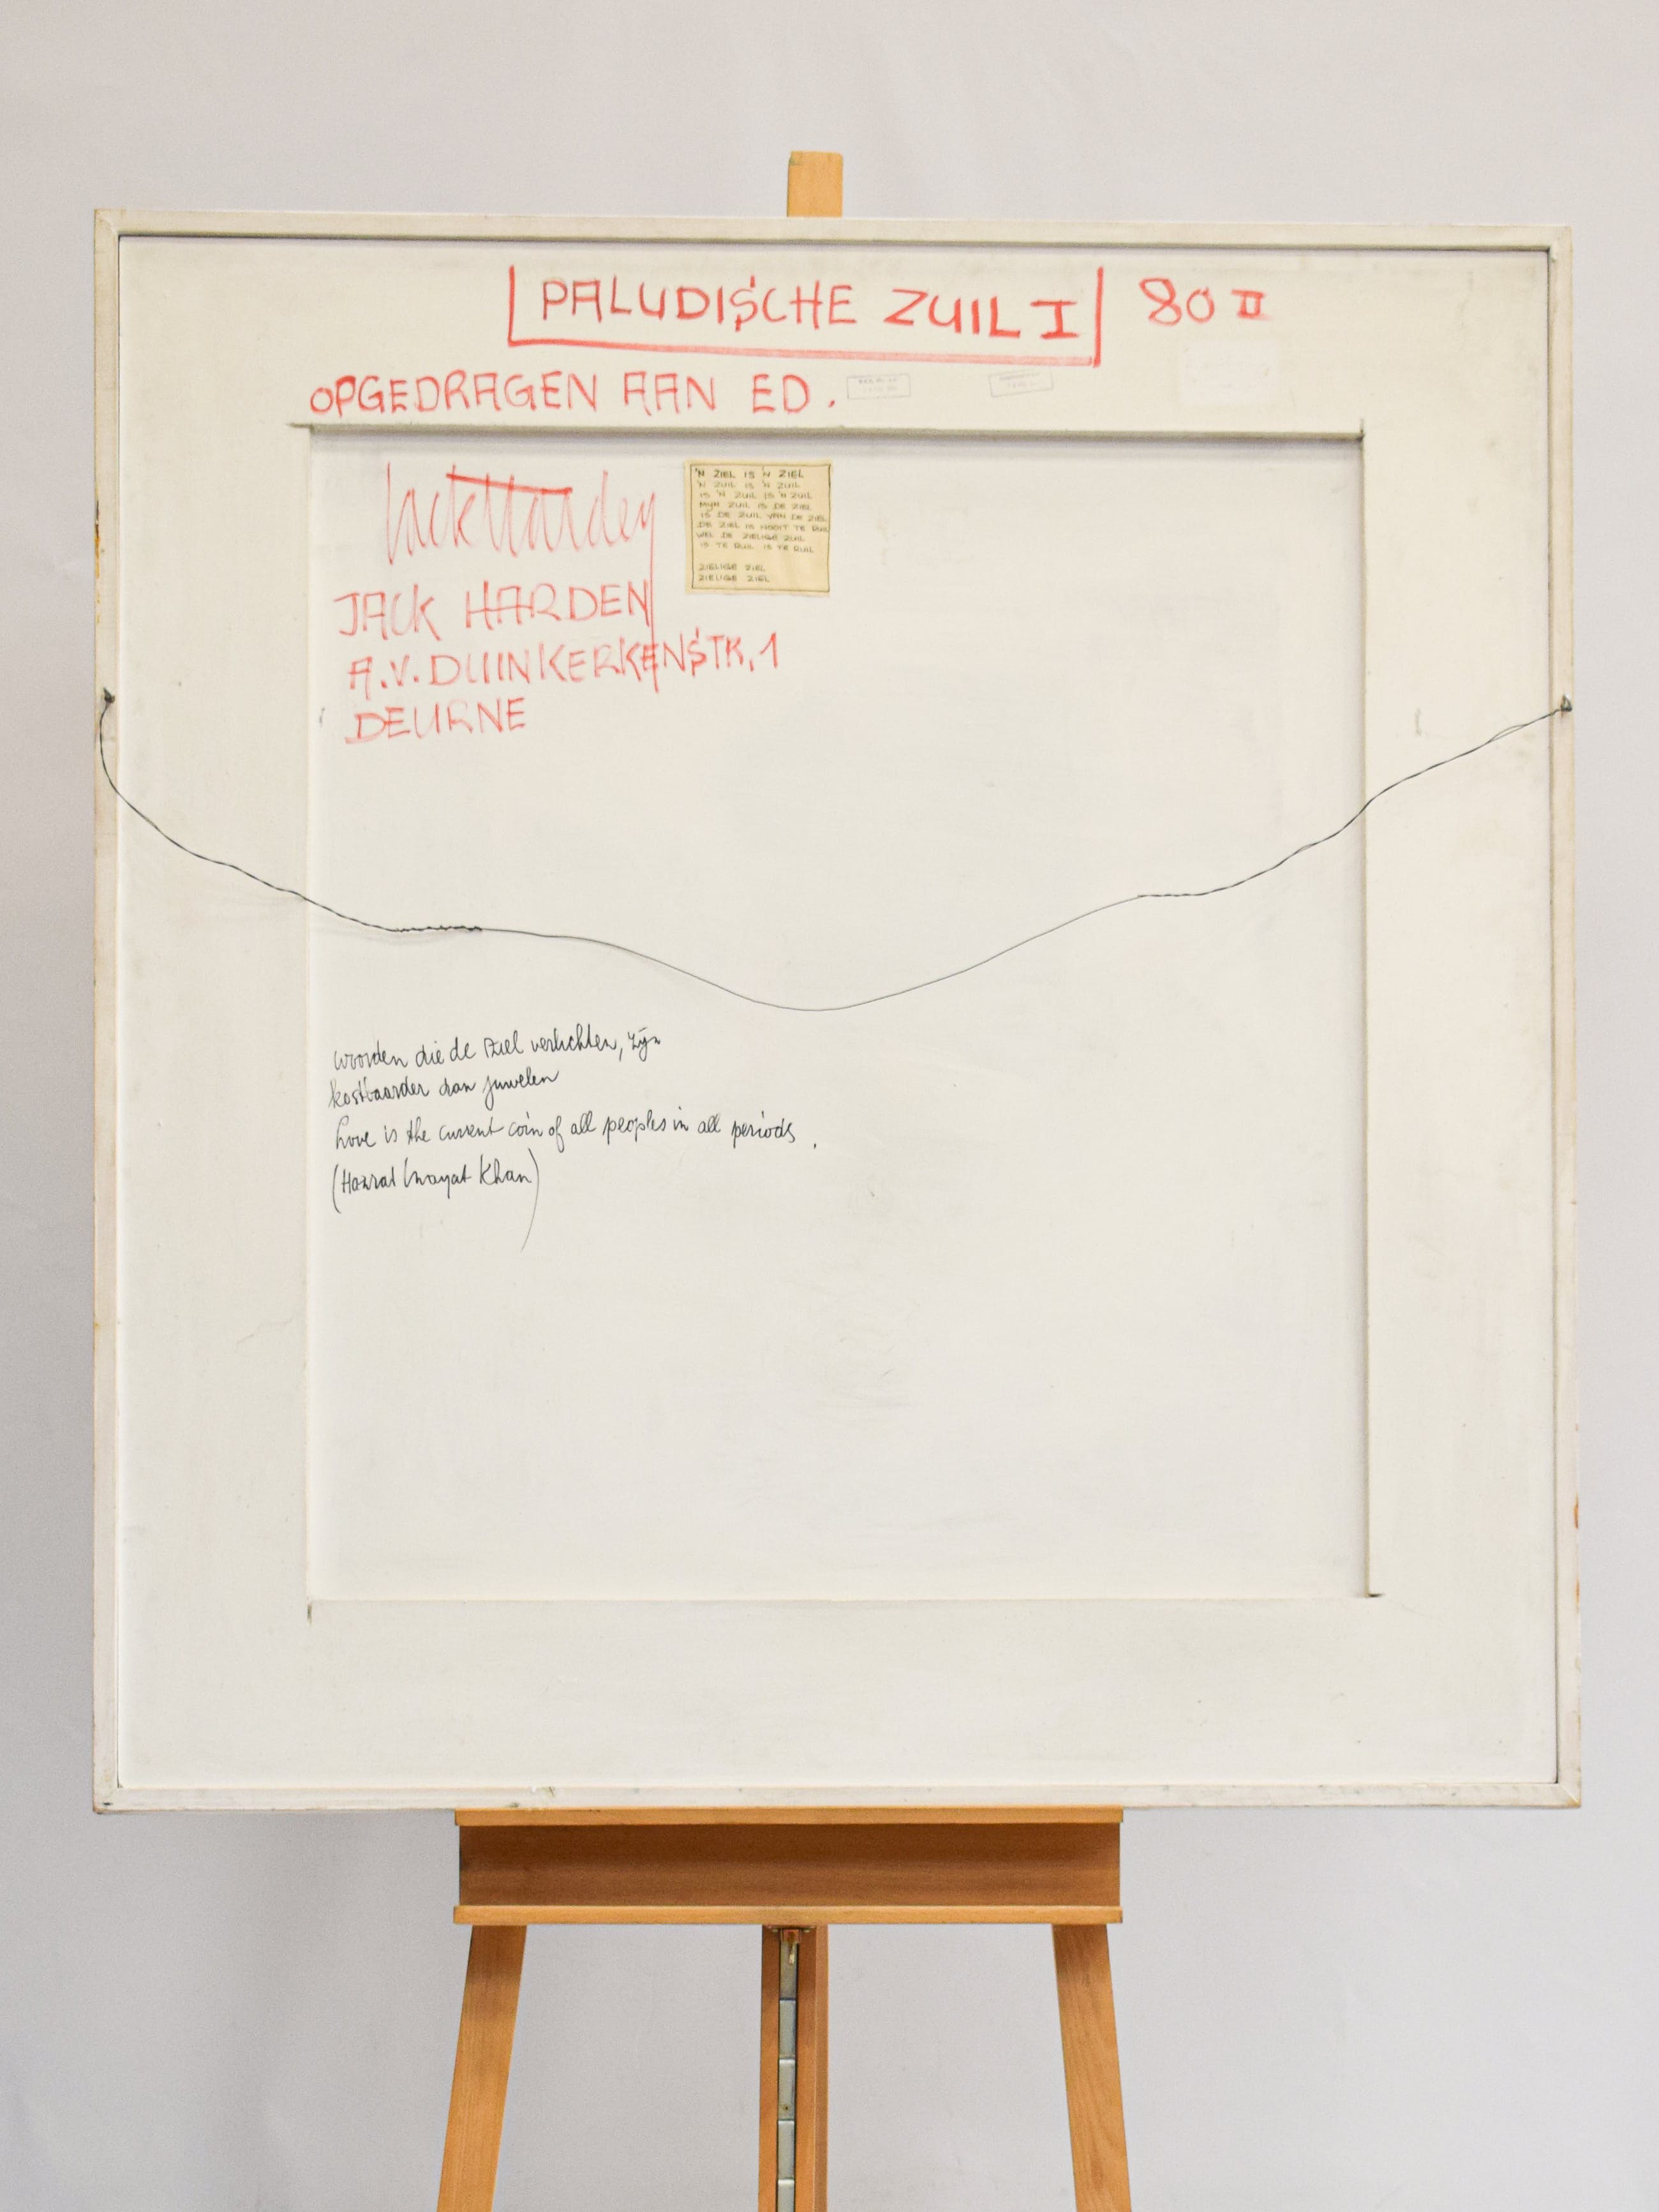 PALUDISCHE ZUIL I 80 II
OPGEDRAGEN AAN ED.
Jack Harden
JACK HARDEN
A.V. DUINKERKENSTR. 1
DEURNE
'N ZIEL IS 'N ZIEL
'N ZUIL IS 'N ZUIL
IS 'N ZUIL IS 'N ZUIL
MIJN ZUIL IS DE ZIEL
IS DE ZUIL VAN DE ZIEL
DE ZIEL IS NOOIT TE RUIL
WEL DE ZIELIGE ZUIL
IS TE RUIL IS TE RUIL
ZIELIGE ZIEL
ZIELIGE ZIEL
woorden die de ziel verlichten, zijn
kostbaarder dan juwelen
Love is the current coin of all peoples in all periods.
(Hazrat Inayat Khan)